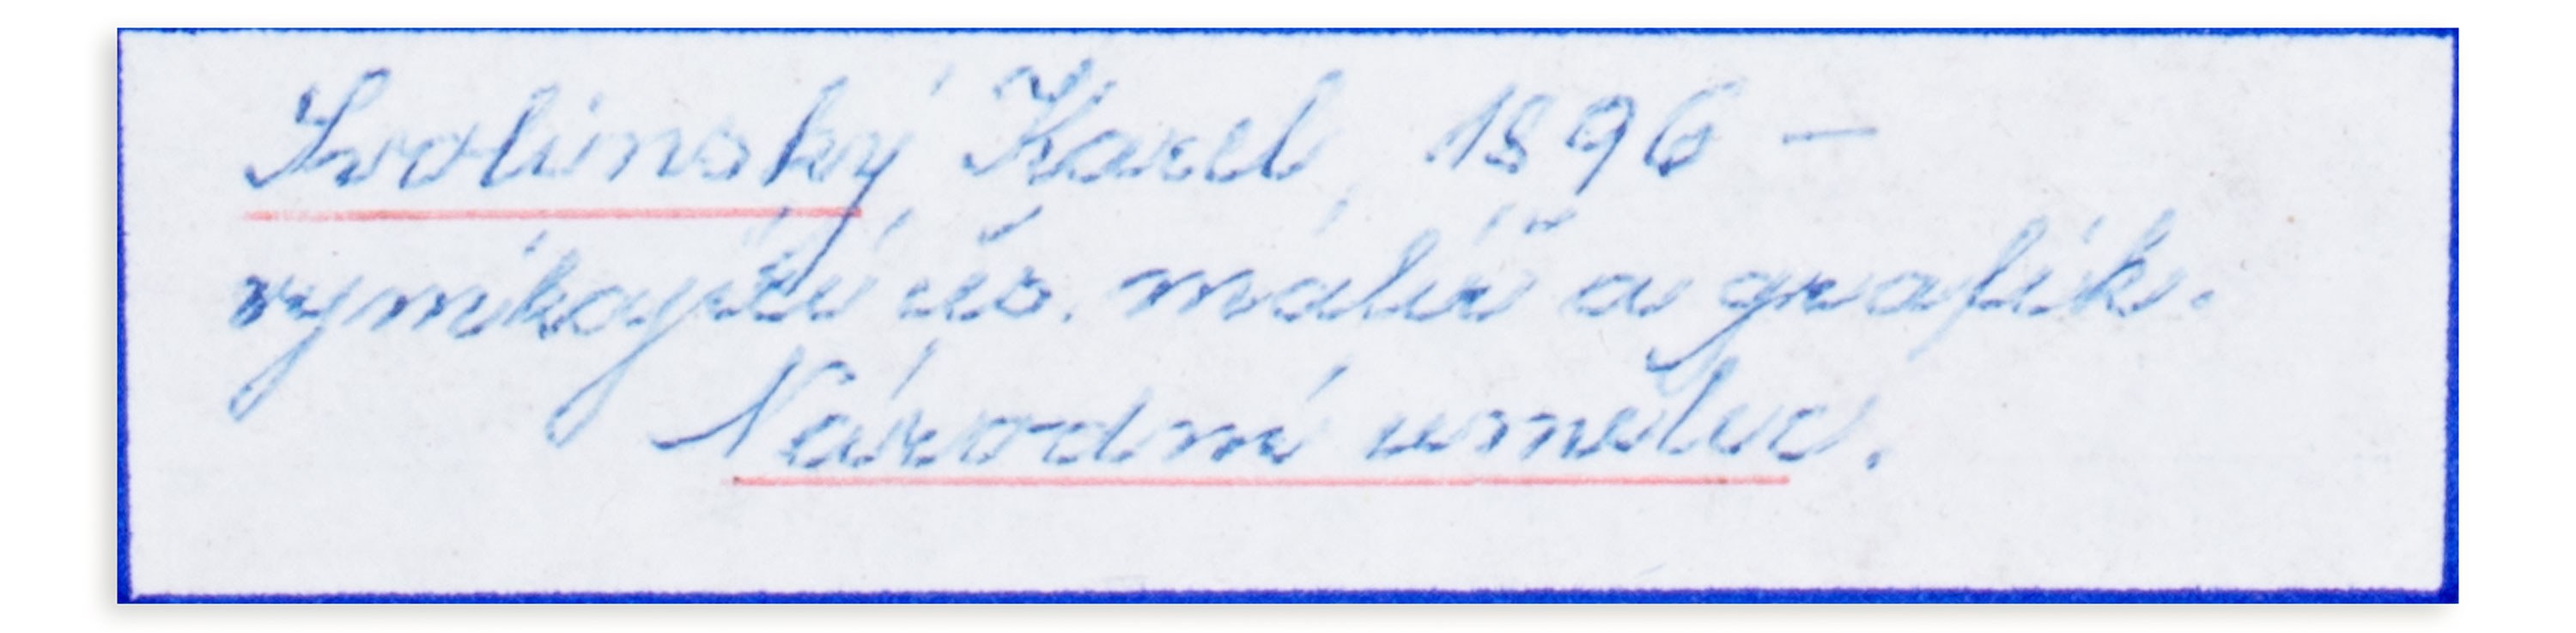 Svolinský Karel, 1896 –
vynikající čs. malíř a grafik.
Národní umělec.